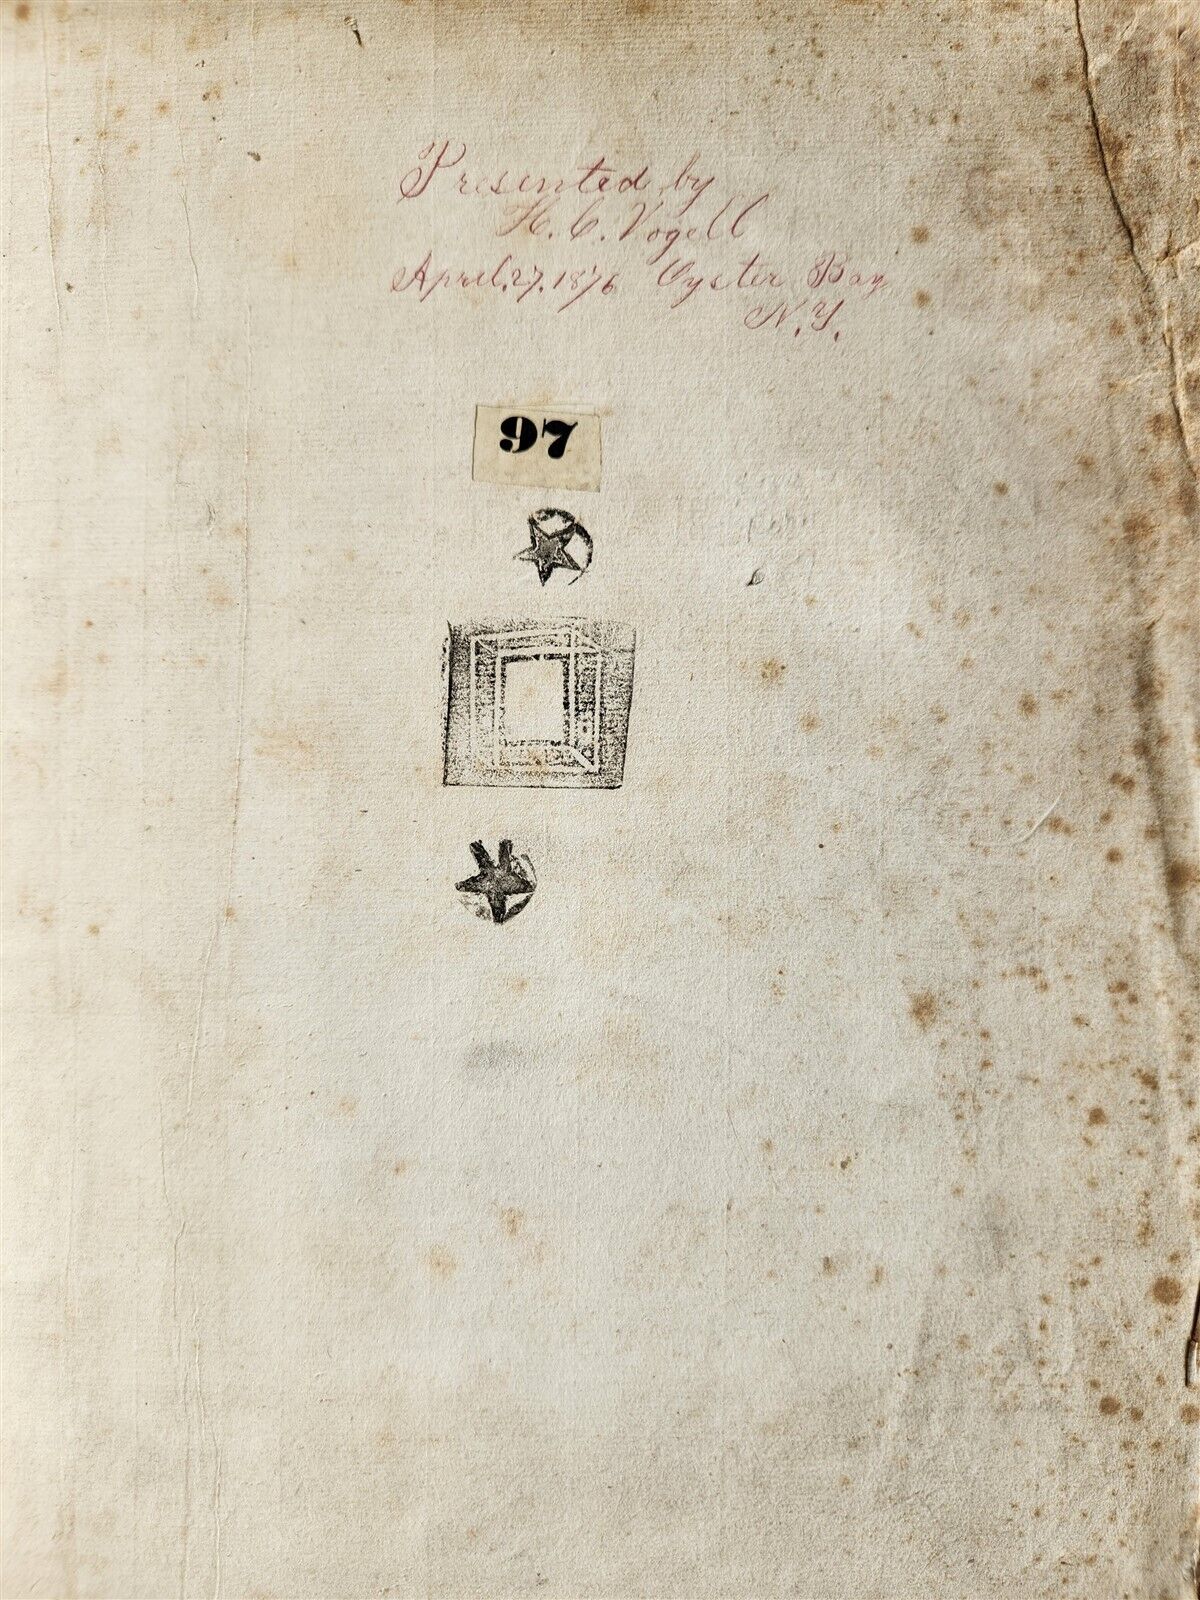 Presented by
H. C. Vogell
April. 27. 1876 Oyster Bay
N. Y.
97